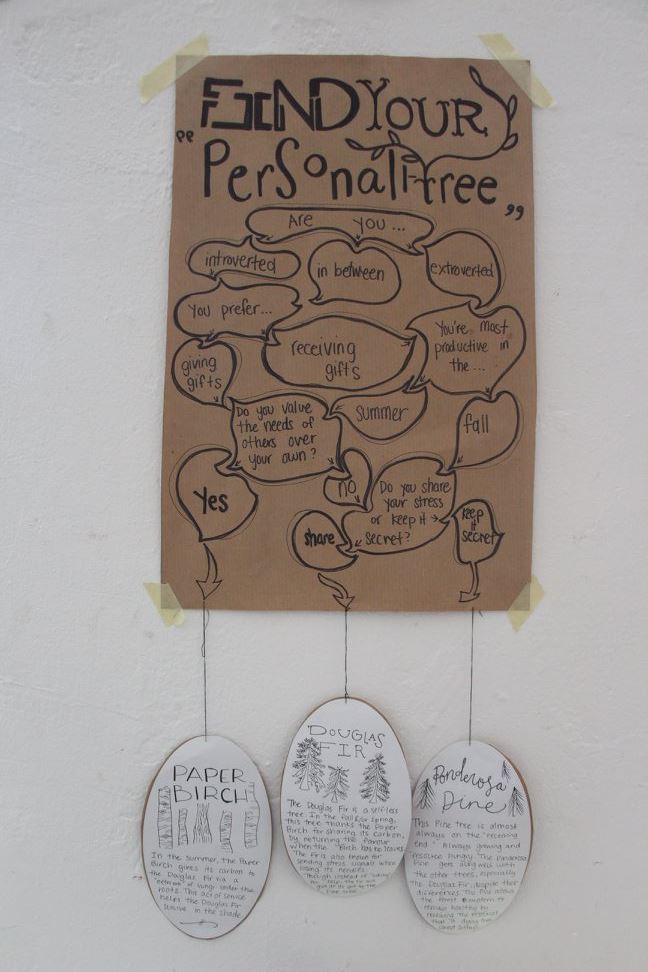 FIND YOUR
"PerSonali-tree"
Are you ...
introverted
in between
extroverted
You prefer...
You're most
productive in
the ...
giving
gifts
receiving
gifts
Do you value
the needs of
others over
your own?
summer
fall
Yes
no
Do you share
your stress
or keep it
secret?
share
keep
it
secret
PAPER
BIRCH
In the summer, the Paper
Birch gives its carbon to
the Douglas Fir via a
"network" of fungi under the
roots. This act of service
helps the Douglas Fir
survive in the shade
DOUGLAS
FIR
The Douglas Fir is a selfless
tree. In the fall & spring,
this tree thanks the Paper
Birch for sharing its carbon,
by returning the favour
when the Birch has no leaves.
The Fir is also known for
sending stress signals when
losing its needles.
Ponderosa
Pine
This Pine tree is almost
always on the "receiving
end." Always growing and
resource hungry. The Ponderosa
Pine gets along well with
the other trees, especially
the Douglas Fir, despite their
differences. The Pine allows
the forest